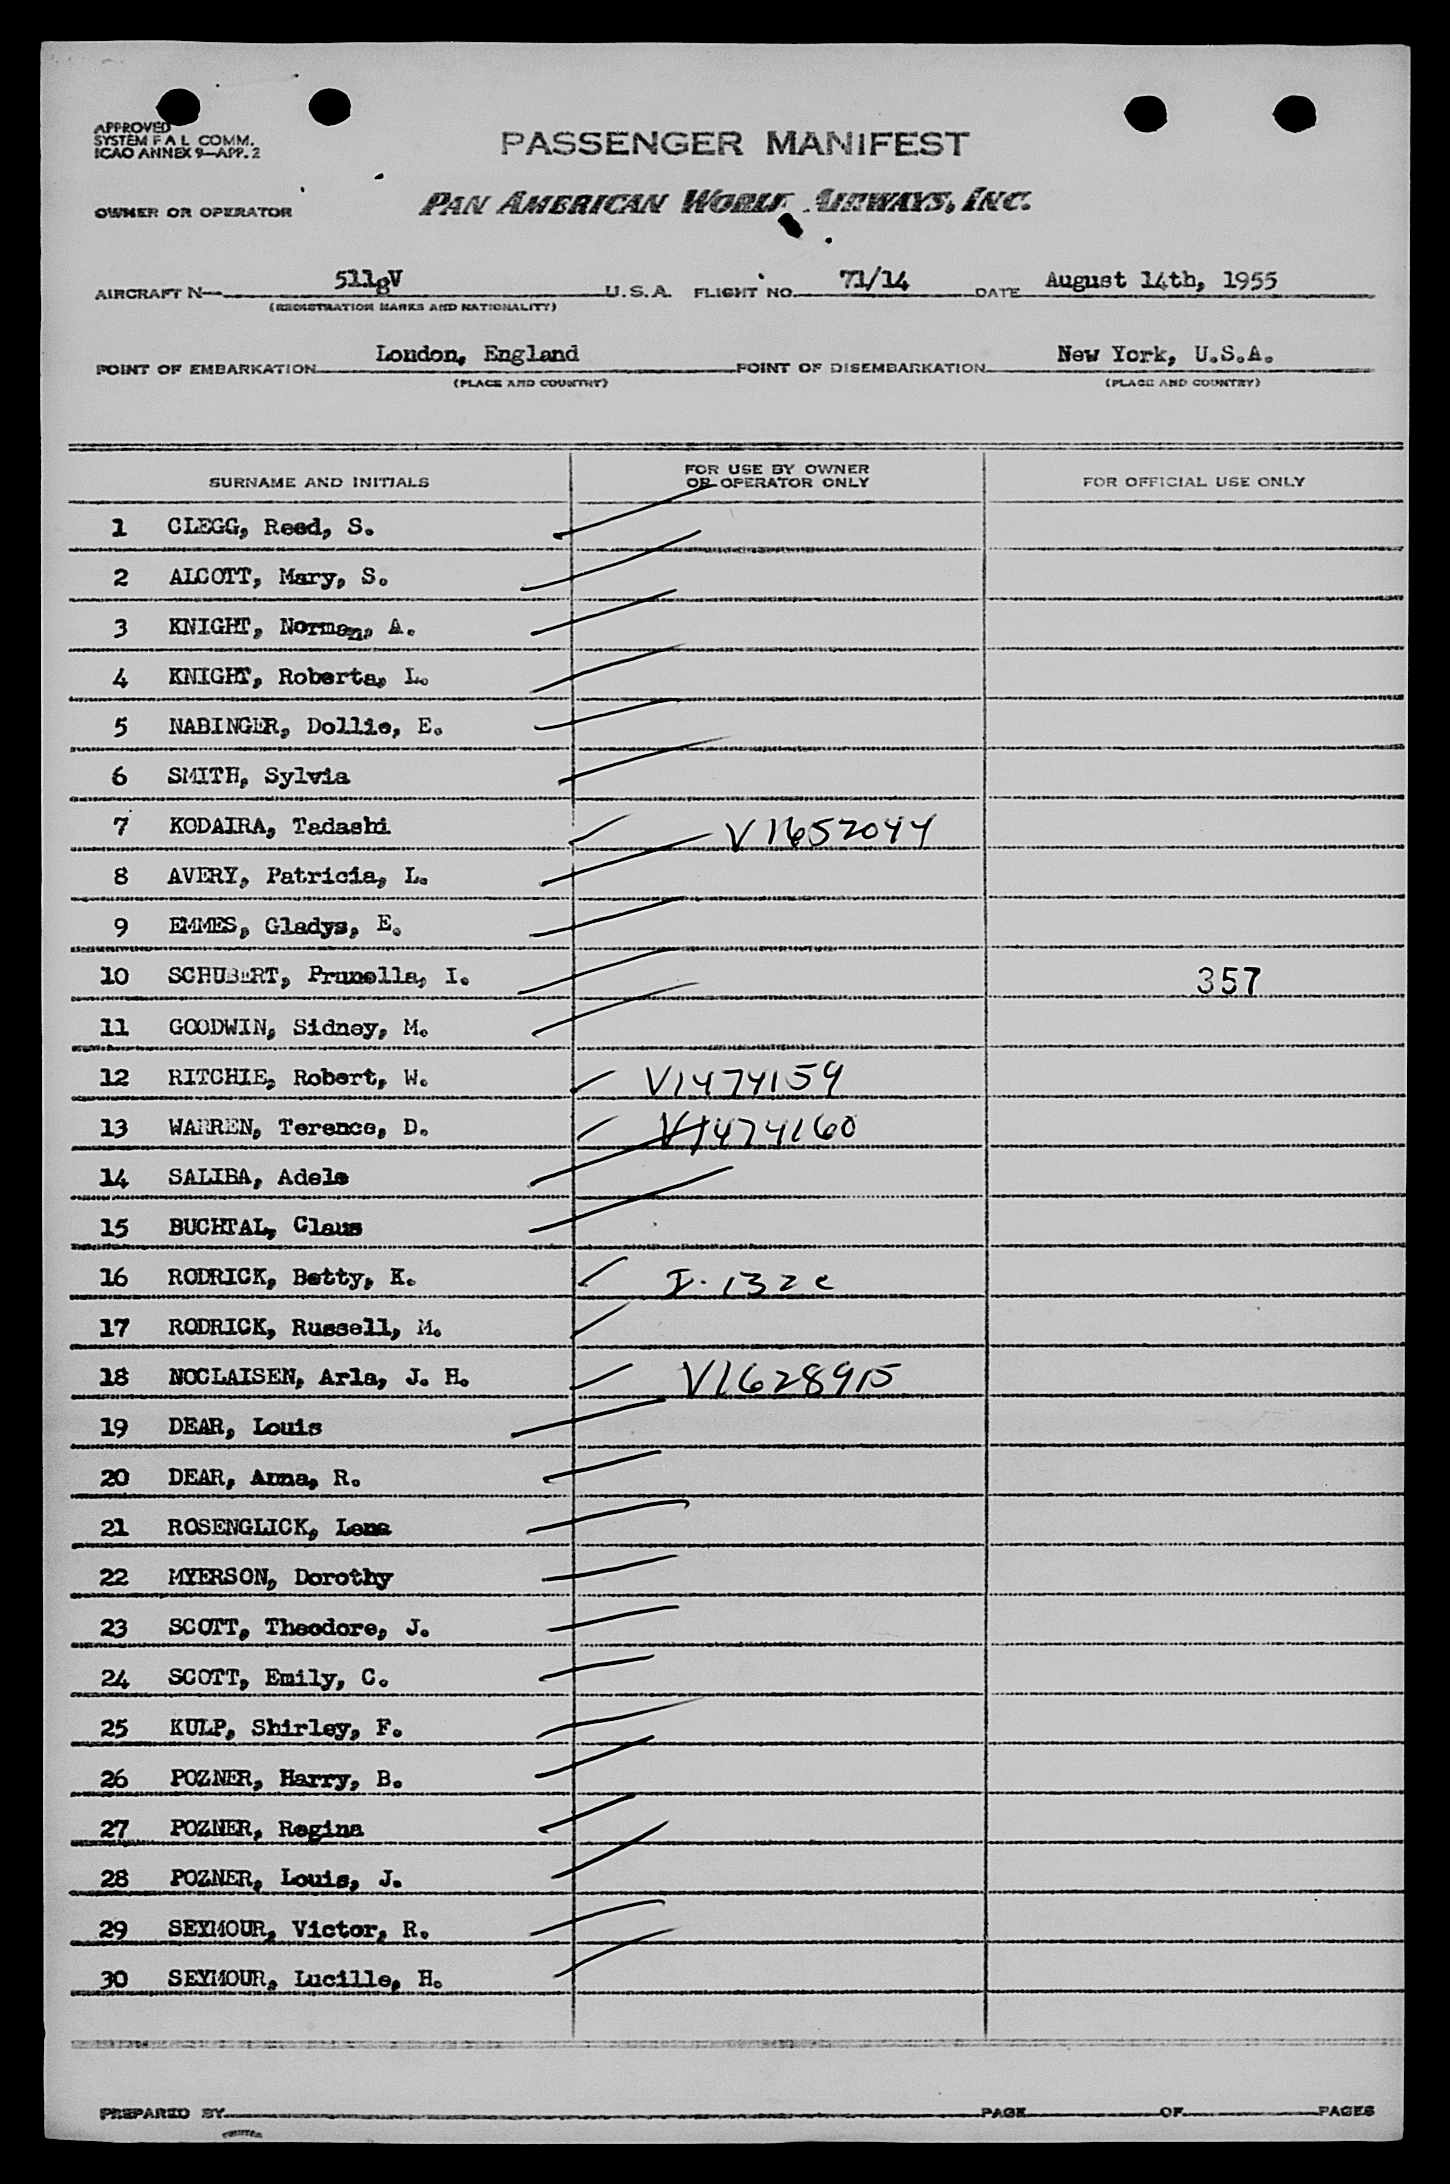 APPROVED
SYSTEM F A L COMM.
ICAO ANNEX 9—APP. 2
PASSENGER MANIFEST
OWNER OR OPERATOR PAN AMERICAN WORLD AIRWAYS, INC.
AIRCRAFT N— 5119V U.S.A. FLIGHT NO. 71/14 DATE August 14th, 1955
(REGISTRATION MARKS AND NATIONALITY)
POINT OF EMBARKATION London, England POINT OF DISEMBARKATION New York, U.S.A.
(PLACE AND COUNTRY) (PLACE AND COUNTRY)
SURNAME AND INITIALS FOR USE BY OWNER OR OPERATOR ONLY FOR OFFICIAL USE ONLY
1 CLEGG, Reed, S.
2 ALCOTT, Mary, S.
3 KNIGHT, Norman, A.
4 KNIGHT, Roberta, L.
5 NABINGER, Dollie, E.
6 SMITH, Sylvia
7 KODAIRA, Tadashi V1652044
8 AVERY, Patricia, L.
9 EMMES, Gladys, E.
10 SCHUBERT, Prunella, I. 357
11 GOODWIN, Sidney, M.
12 RITCHIE, Robert, W. V1474159
13 WARREN, Terence, D. V1474160
14 SALIBA, Adele
15 BUCHTAL, Claus
16 RODRICK, Betty, K. I-132c
17 RODRICK, Russell, M.
18 NOCLAISEN, Arla, J. H. V1628915
19 DEAR, Louis
20 DEAR, Anna, R.
21 ROSENGLICK, Lena
22 MYERSON, Dorothy
23 SCOTT, Theodore, J.
24 SCOTT, Emily, C.
25 KULP, Shirley, F.
26 POZNER, Harry, B.
27 POZNER, Regina
28 POZNER, Louis, J.
29 SEYMOUR, Victor, R.
30 SEYMOUR, Lucille, H.
PREPARED BY PAGE OF PAGES